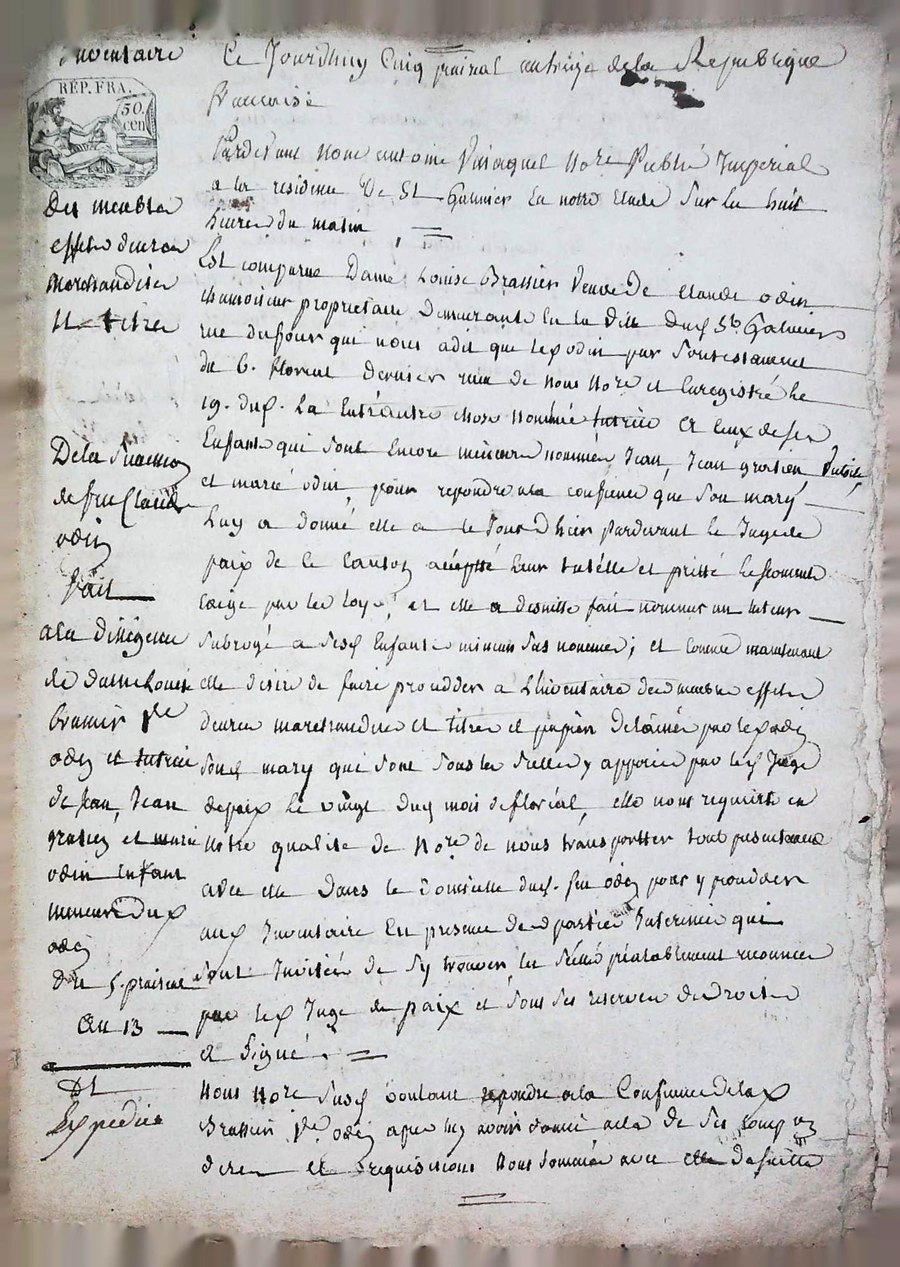 inventaire
REP. FRA.
50.
cen
des meubles
effets denrées
marchandises
et titres
De la succession
de feu Claude
odin
fait
a la dilligence
de dame Louise
brassier ve
odin et tutrice
de Jean, Jean
gratien et marie
odin enfant
mineurs dud
odin
du 5. prairial
an 13
Dt
Expedié
Ce Jourdhuy Cinq prairial an treize de la Republique
francoise
Pardevant nous antoine Nore Public Imperial
a la residence De St Galmier En notre Etude Sur les huit
heures du matin
Est comparue Dame Louise Brassier Veuve De Claude odin
chamoiseur proprietaire Demeurante En la Ville dud St Galmier
rue dufour qui nous a dit que led odin par Son testament
du 6. floreal dernier recu de nous Nore et Enregistré le
19. dud. La Entrautre chose nommée tutrice a Ceux de ses
Enfants qui sont Encore mineurs nommés Jean, Jean gratien,
et marie odin, pour repondre a la confience que Son mary
Luy a donné elle a le Jour D'hier Pardevant le Juge de
paix de ce canton accepté leur tutelle et pretté le serment
Exigé par les loys, et elle a de suitte fait nommer un tuteur
Subrogé a Sesd Enfants mineurs sus nommés; et comme maintenant
elle desire de faire proceder a L'inventaire des meubles effets
denrées marchandises et titres et papiers delaissés par led odin
Sond mary qui sont Sous les Scellés y apposés par led Juge
de paix le vingt dud mois de floréal, elle nous requiert en
notre qualité de Nore de nous transportter tout presentement
avec elle Dans le Domicille dud. feu odin pour y proceder
aud Inventaire En presence des parties Interessées qui
sont Invitées de s'y trouver, les Scellés préalablement reconnus
par led Juge de paix et Sous ses reserves de Droits
et Signé.
Nous Nore Susd voulant repondre a la Confience de lad
Brassier ve odin apres luy avoir donné acte de ses comp on
dires et requisitions nous sommes avec elle de suitte